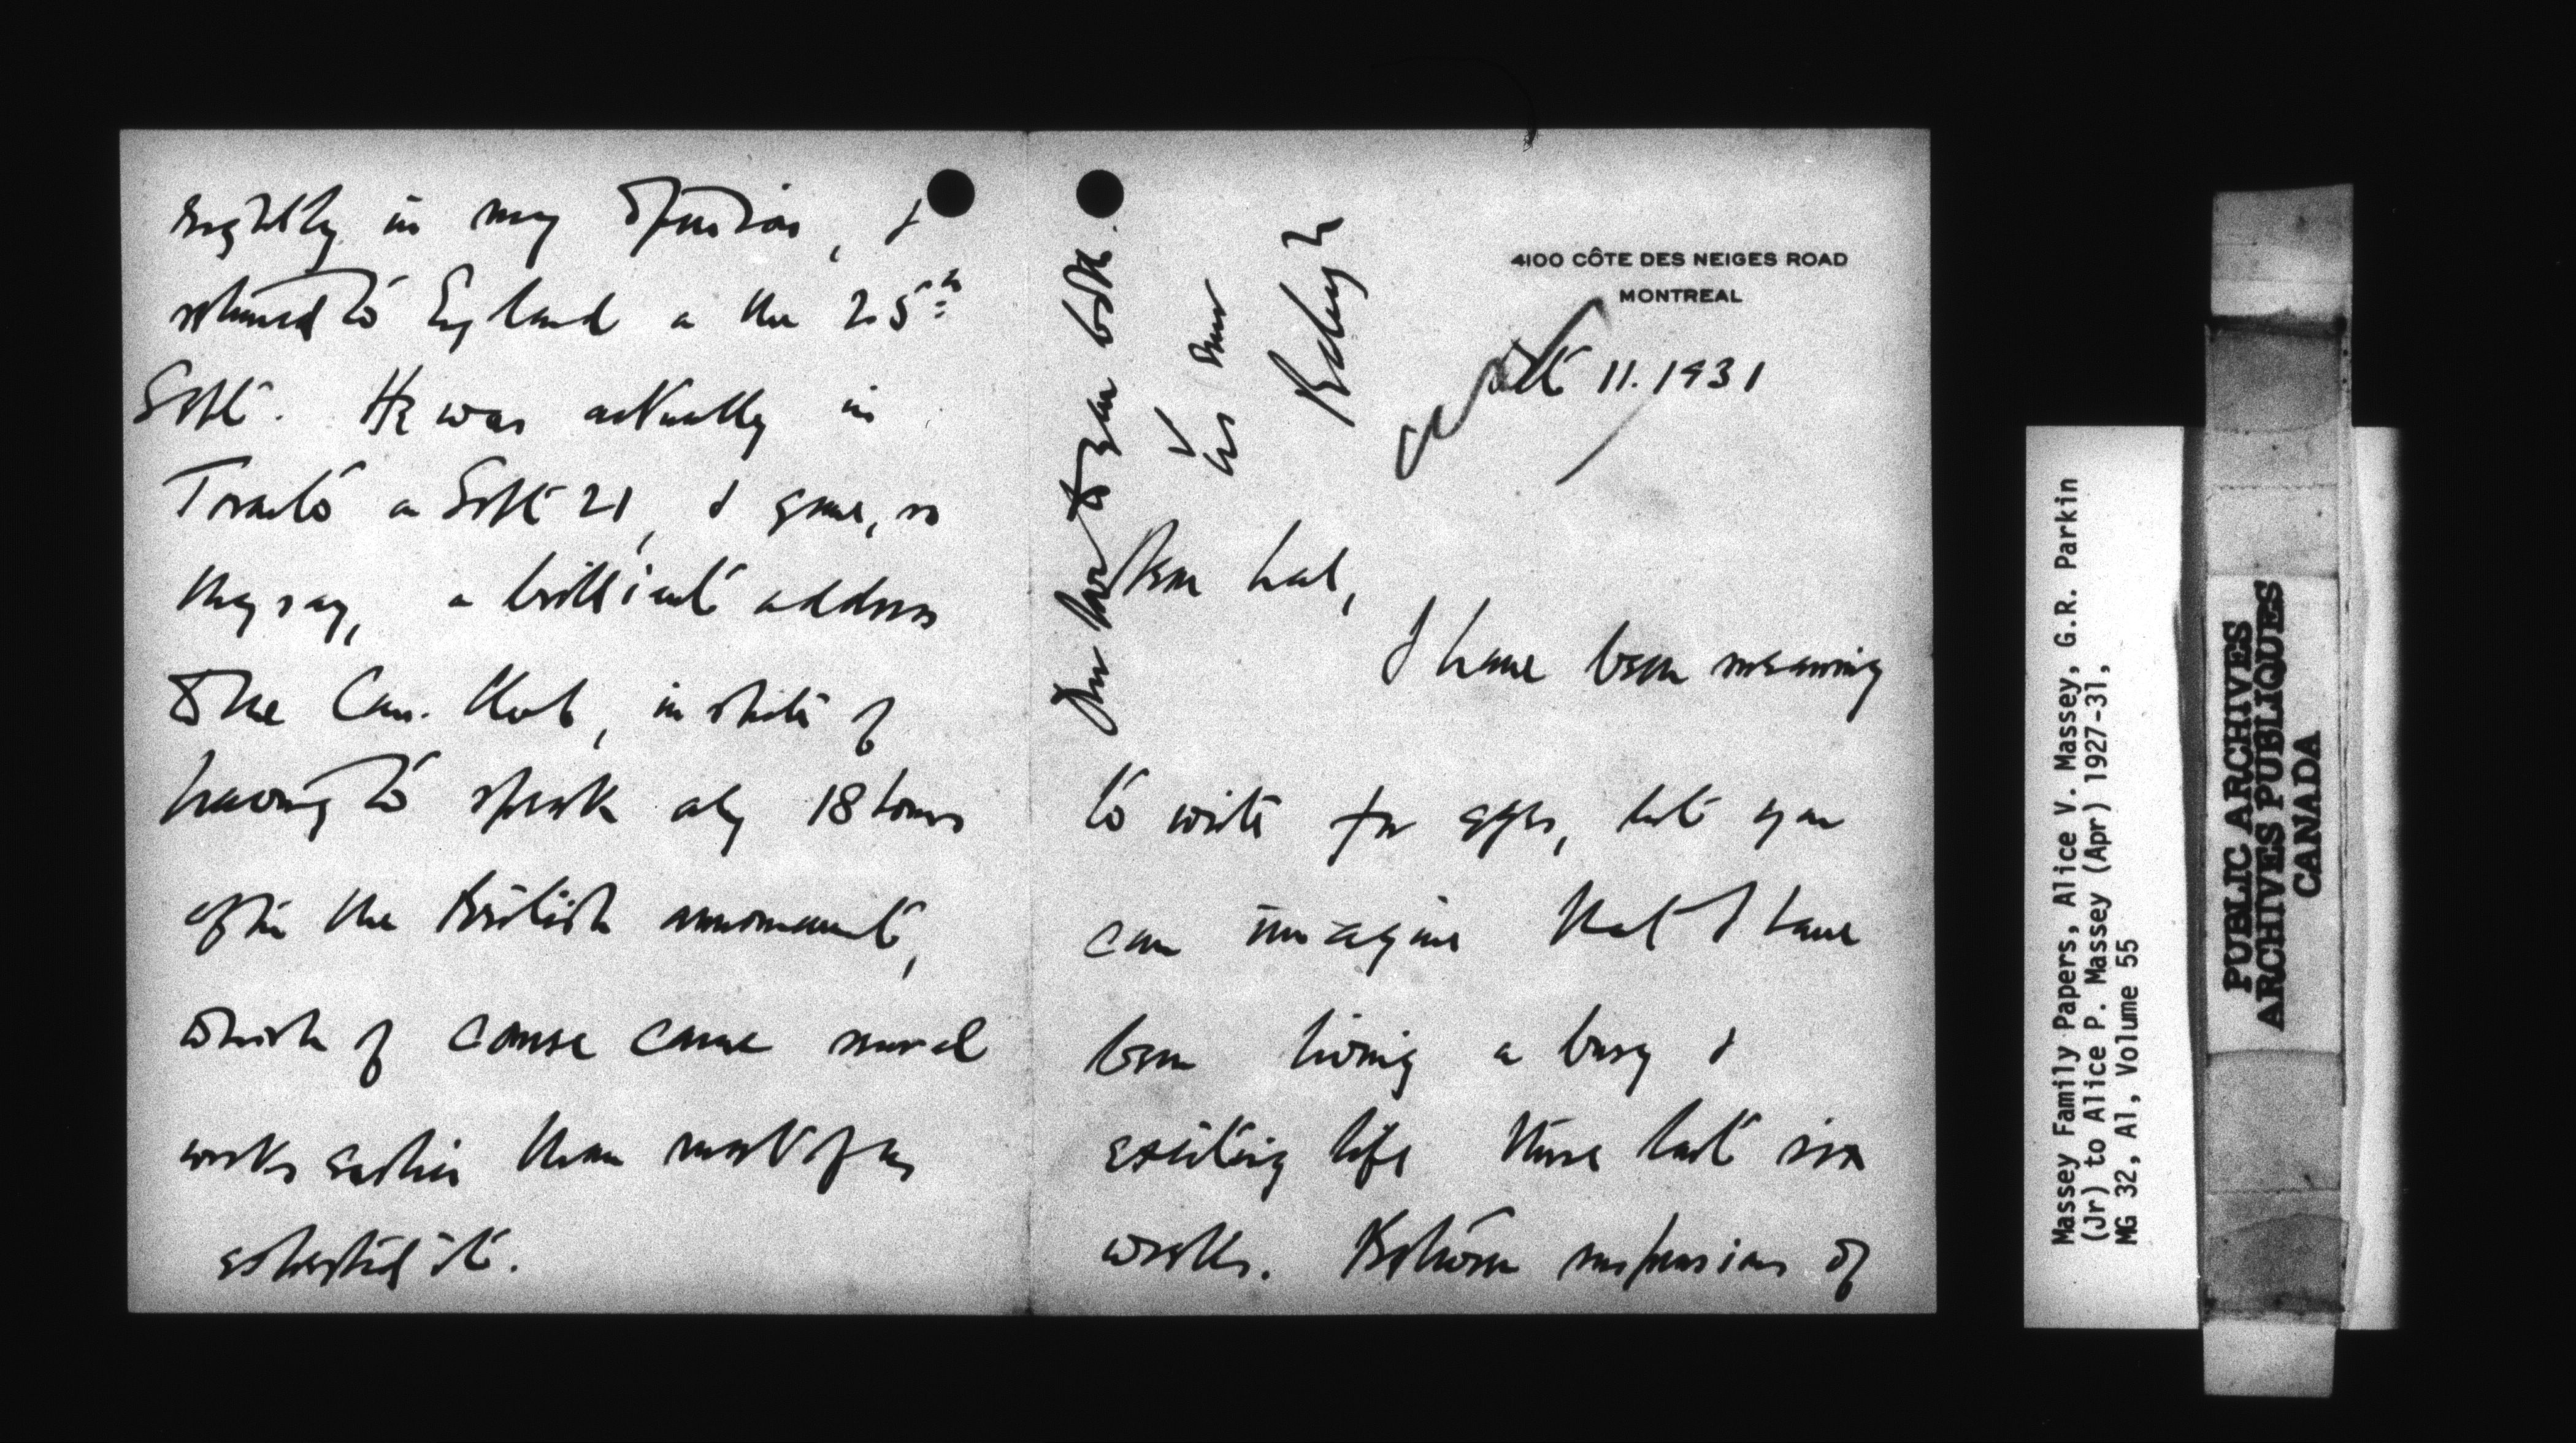 rightly in my opinion, &
returned to England on the 25th
Sept. He was actually in
Toronto on Sept 21, & gave, so
they say, a brilliant address
to the Can. Club, in spite of
having to speak only 18 hours
after the British announcement,
which of course came several
weeks earlier than most of us
expected it.
Much love to you both.
Yrs ever
4100 CÔTE DES NEIGES ROAD
MONTREAL
Oct 11. 1931
Dear Lal,
I have been meaning
to write for ages, but you
can imagine that I have
been living a busy &
exciting life these last six
weeks. Between suspensions of
Massey Family Papers, Alice V. Massey, G.R. Parkin
(Jr) to Alice P. Massey (Apr) 1927-31,
MG 32, A1, Volume 55
PUBLIC ARCHIVES
ARCHIVES PUBLIQUES
CANADA